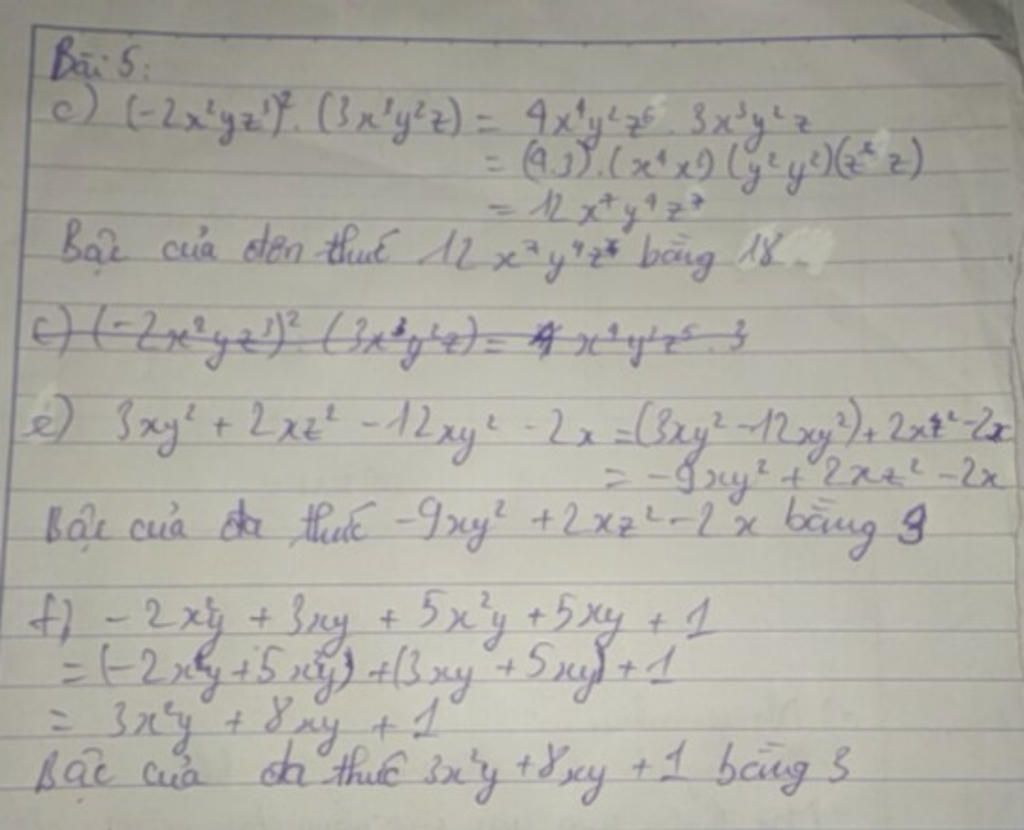 Bài 5:
c) (-2x²yz³)². (3x³y²z) = 4x⁴y²z⁶ . 3x³y²z
= (4.3).(x⁴x³)(y²y²)(z⁶z)
= 12x⁷y⁴z⁷
Bậc của đơn thức 12x⁷y⁴z⁷ bằng 18
c) (-2x²yz³)². (3x³y²z) = 4x⁴y²z⁶.3
e) 3xy² + 2xz² - 12xy² - 2x = (3xy² - 12xy²) + 2xz² - 2x
= -9xy² + 2xz² - 2x
Bậc của đa thức -9xy² + 2xz² - 2x bằng 3
f) -2x²y + 3xy + 5x²y + 5xy + 1
= (-2x²y + 5x²y) + (3xy + 5xy) + 1
= 3x²y + 8xy + 1
Bậc của đa thức 3x²y + 8xy + 1 bằng 3